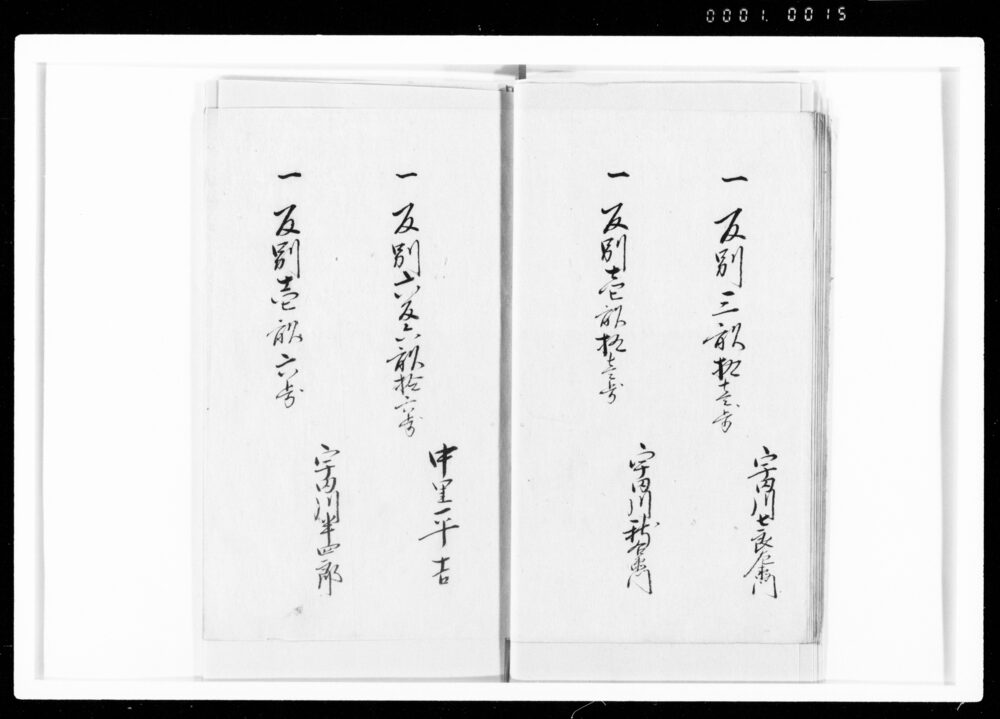 0001. 0015
一 反別三畝拾壱歩
宇内川七良左衛門
一 反別壱畝拾壱歩
宇内川
一 反別六反六畝拾六歩
中里平吉
一 反別壱畝六歩
宇内川半四郎